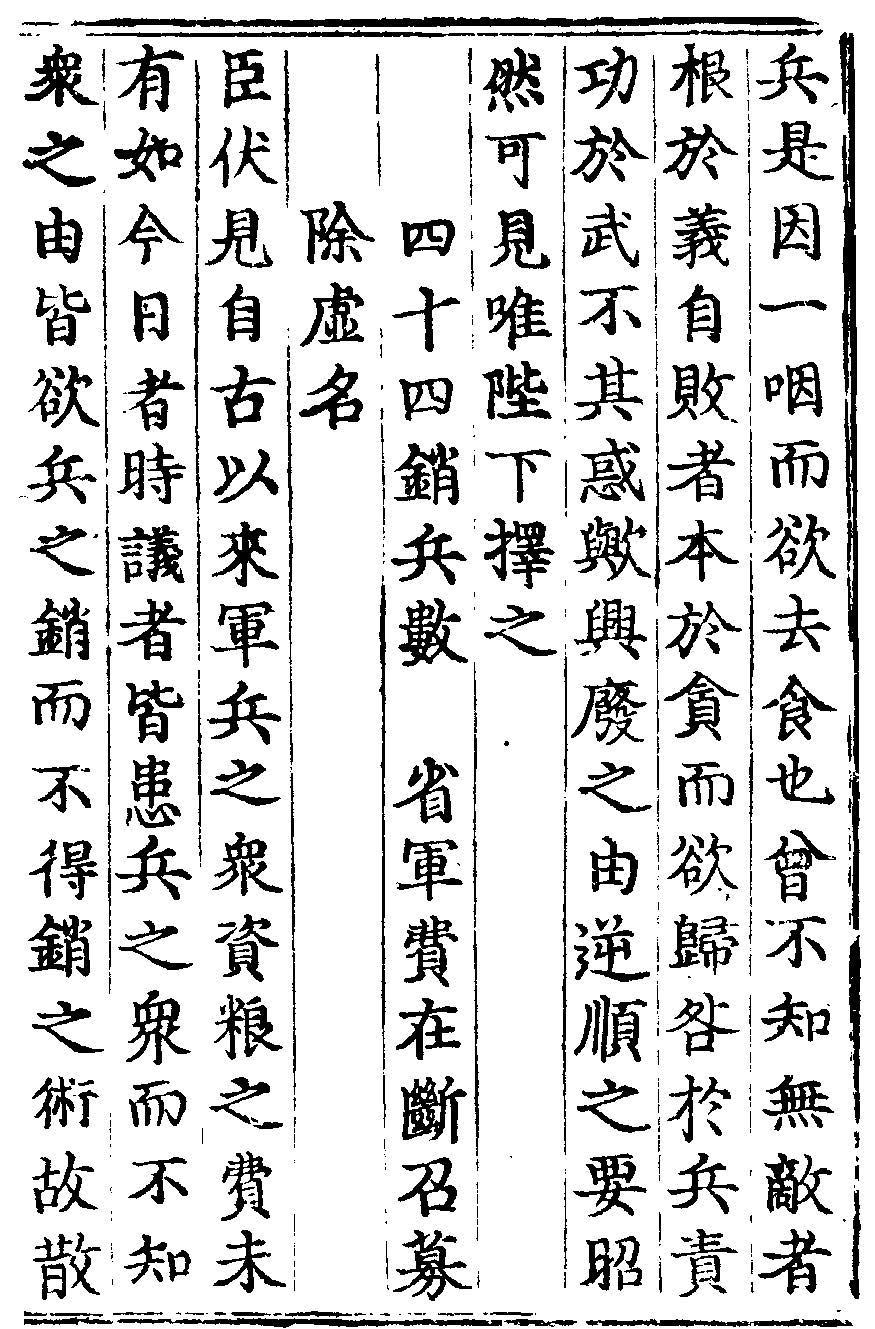 兵是因一咽而欲去食也曾不知無敵者
根於義自敗者本於貪而欲歸咎於兵責
功於武不其惑歟興廢之由逆順之要昭
然可見唯陛下擇之
四十四銷兵數　省軍費在斷召募
除虛名
臣伏見自古以來軍兵之衆資粮之費未
有如今日者時議者皆患兵之衆而不知
衆之由皆欲兵之銷而不得銷之術故散